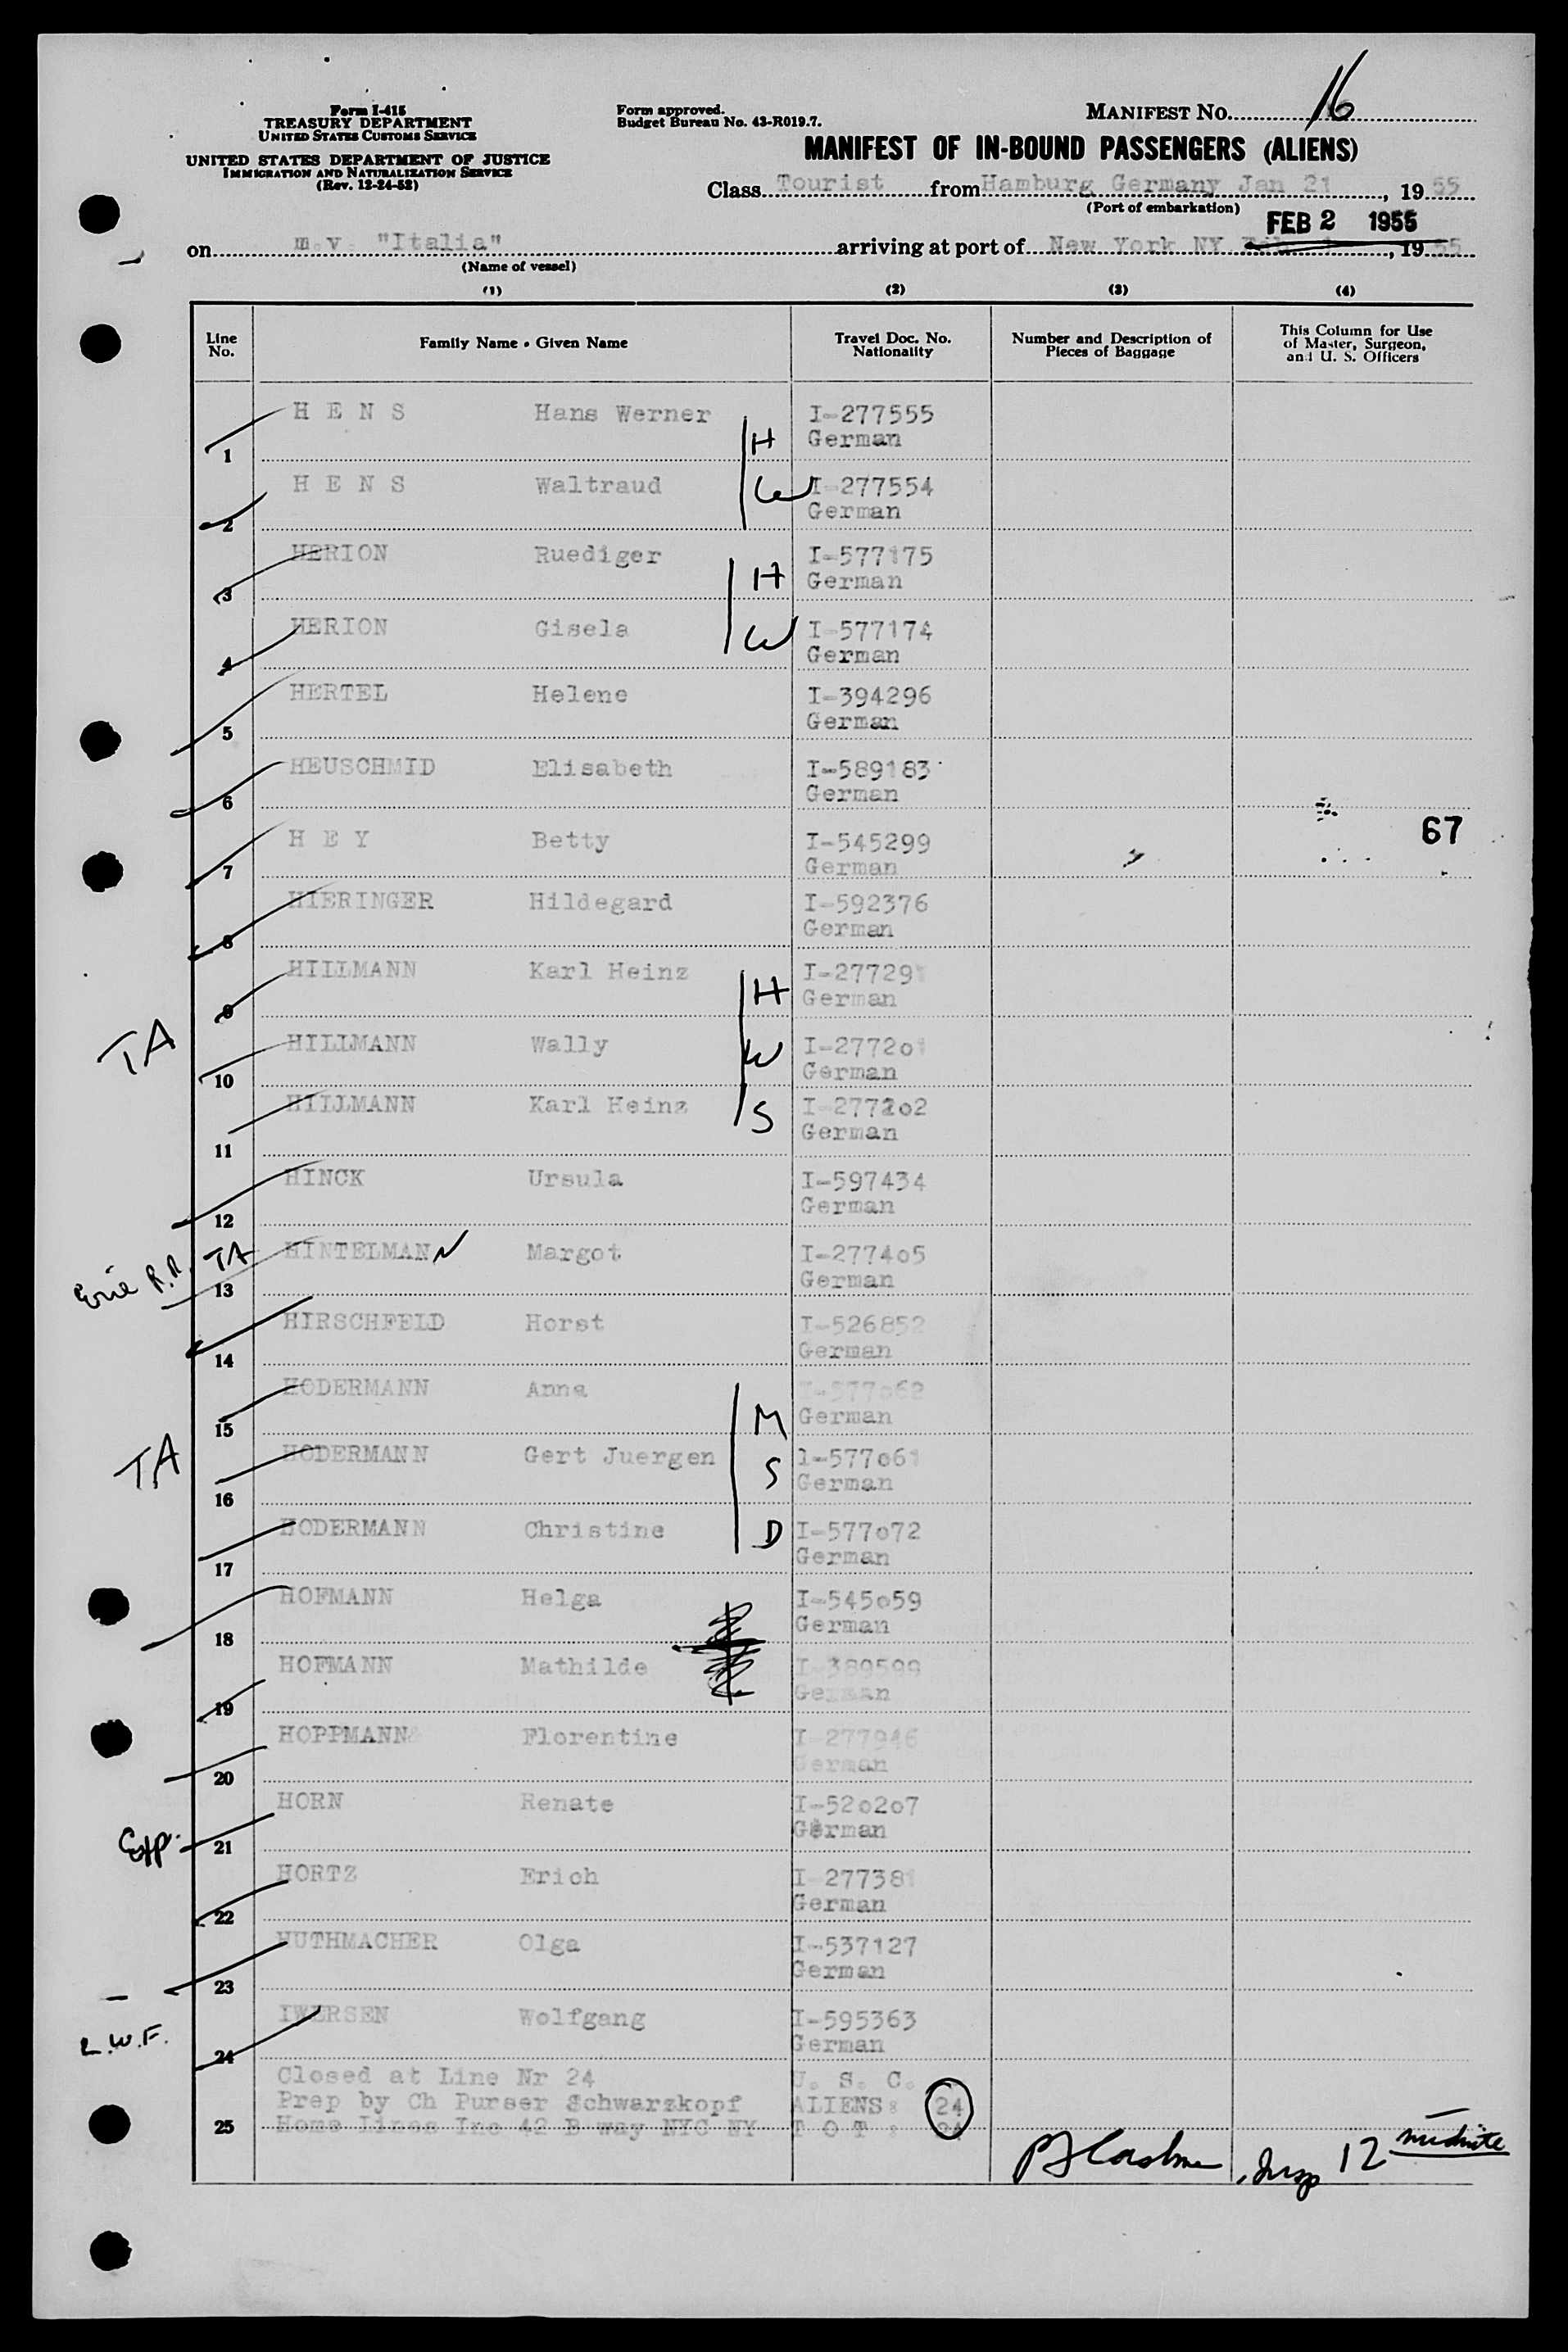 Form I-415
TREASURY DEPARTMENT
UNITED STATES CUSTOMS SERVICE
UNITED STATES DEPARTMENT OF JUSTICE
IMMIGRATION AND NATURALIZATION SERVICE
(Rev. 12-24-52)
Form approved.
Budget Bureau No. 43-R019.7.
MANIFEST NO. 16
MANIFEST OF IN-BOUND PASSENGERS (ALIENS)
Class Tourist from Hamburg Germany Jan 21, 1955
(Port of embarkation)
FEB 2 1955
on m.v. "Italia" arriving at port of New York NY, 1955
(Name of vessel)
(1) (2) (3) (4)
Line No. Family Name - Given Name Travel Doc. No. Nationality Number and Description of Pieces of Baggage This Column for Use of Master, Surgeon, and U. S. Officers
1 H E N S Hans Werner H I-277555
German
2 H E N S Waltraud W I-277554
German
3 HERION Ruediger H I-577175
German
4 HERION Gisela W I-577174
German
5 HERTEL Helene I-394296
German
6 HEUSCHMID Elisabeth I-589183
German
67
7 H E Y Betty I-545299
German
8 HIERINGER Hildegard I-592376
German
9 HILLMANN Karl Heinz H I-277291
German
TA
10 HILLMANN Wally W I-277201
German
11 HILLMANN Karl Heinz S I-277202
German
12 HINCK Ursula I-597434
German
Erie R.R. TA
13 HINTELMANN Margot I-277405
German
14 HIRSCHFELD Horst I-526852
German
15 HODERMANN Anna M I-577062
German
TA
16 HODERMANN Gert Juergen S 1-577061
German
17 HODERMANN Christine D I-577072
German
18 HOFMANN Helga I-545059
German
19 HOFMANN Mathilde I-389599
German
20 HOPPMANN Florentine I-277946
German
21 HORN Renate I-520207
German
22 HORTZ Erich I-277381
German
23 HUTHMACHER Olga I-537127
German
24 IWERSEN Wolfgang I-595363
German
L.W.F.
Closed at Line Nr 24 U. S. C.
Prep by Ch Purser Schwarzkopf ALIENS: 24
25 Home Lines Inc 42 B way NYC NY T O T : 24
, Insp 12 midnite